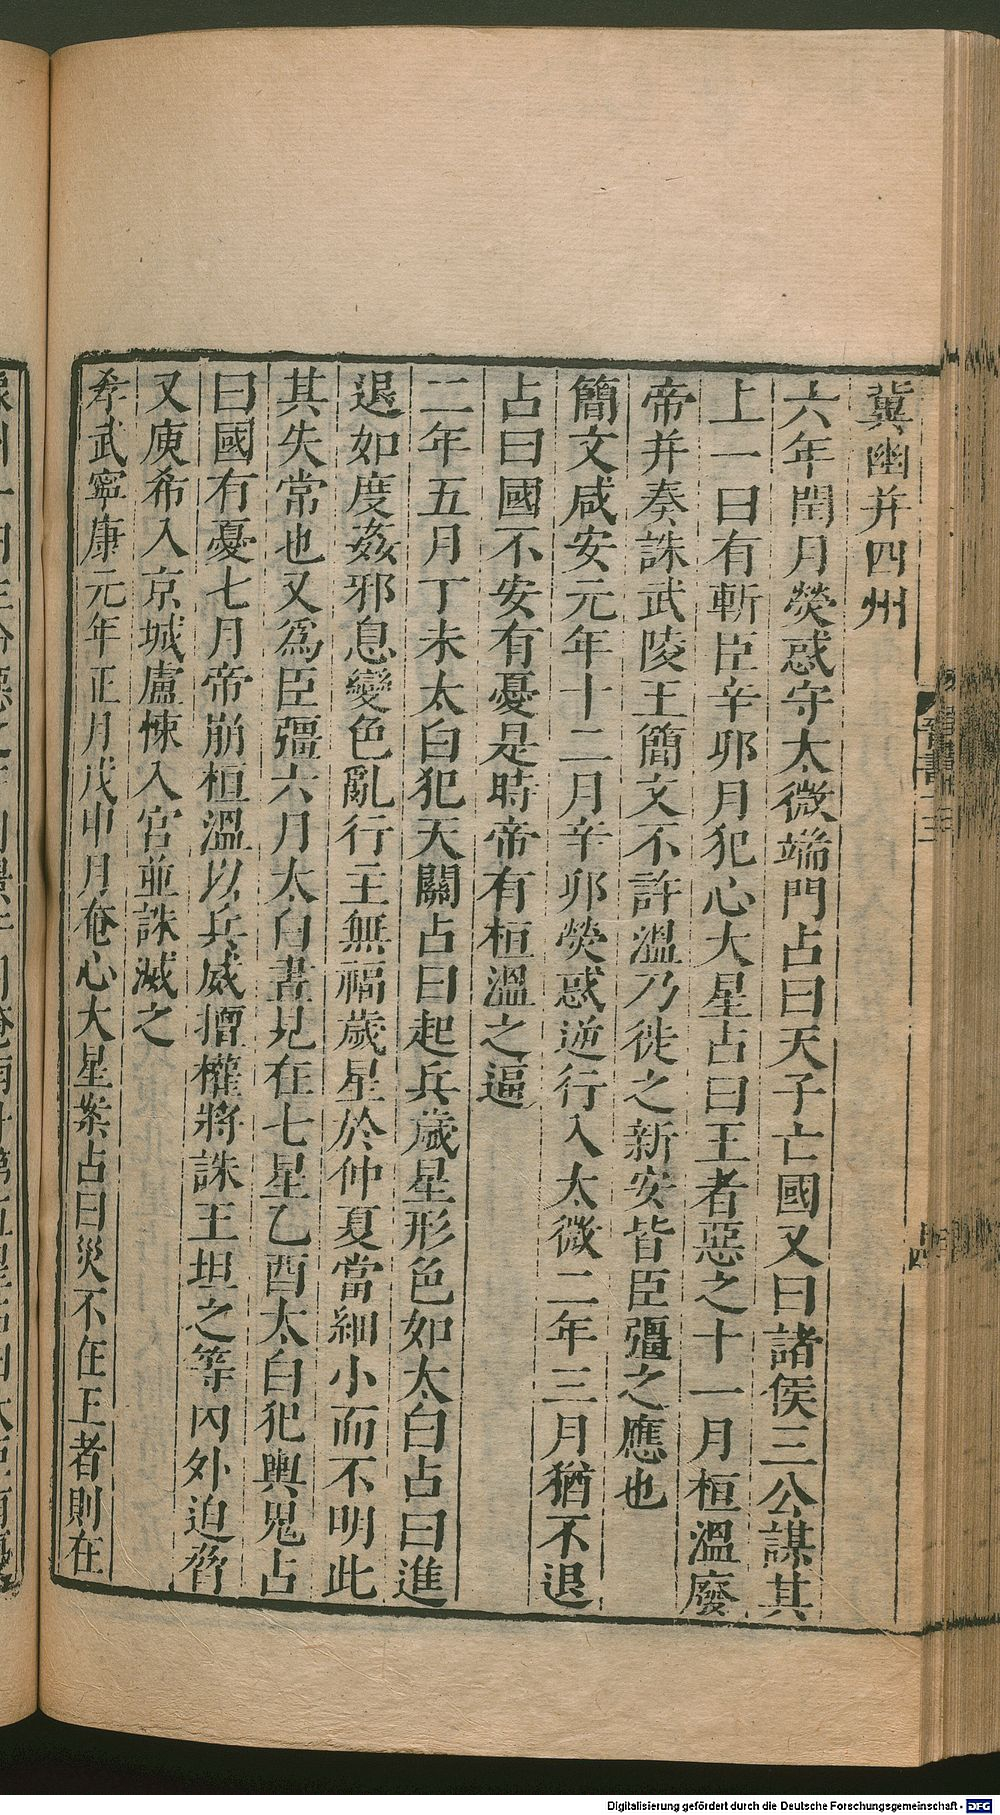 冀幽并四州
六年閏月熒惑守太微端門占曰天子亡國又曰諸侯三公謀其
上一曰有斬臣辛卯月犯心大星占曰王者惡之十一月桓溫廢
帝并奏誅武陵王簡文不許溫乃徙之新安皆臣彊之應也
簡文咸安元年十二月辛卯熒惑逆行入太微二年三月猶不退
占曰國不安有憂是時帝有桓溫之逼
二年五月丁未太白犯天關占曰起兵歲星形色如太白占曰進
退如度姦邪息變色亂行主無福歲星於仲夏當細小而不明此
其失常也又爲臣彊六月太白晝見在七星乙酉太白犯輿鬼占
曰國有憂七月帝崩桓溫以兵威擅權將誅王坦之等內外迫脅
又庾希入京城盧悚入宮並誅滅之
孝武寧康元年正月戊申月奄心大星案占曰災不在王者則在
晉書十三
Digitalisierung gefördert durch die Deutsche Forschungsgemeinschaft - DFG